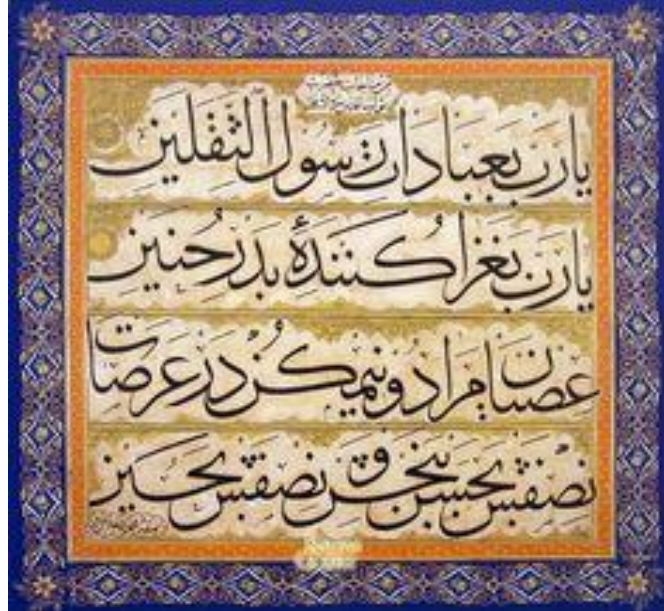 يارب بعبادات رسول الثقلين
يارب بغزا كنندهٔ بدر حنين
عصيان مرا دو نيم كن در عرصات
نصفش بحسن ببخش و نصفش بحسين